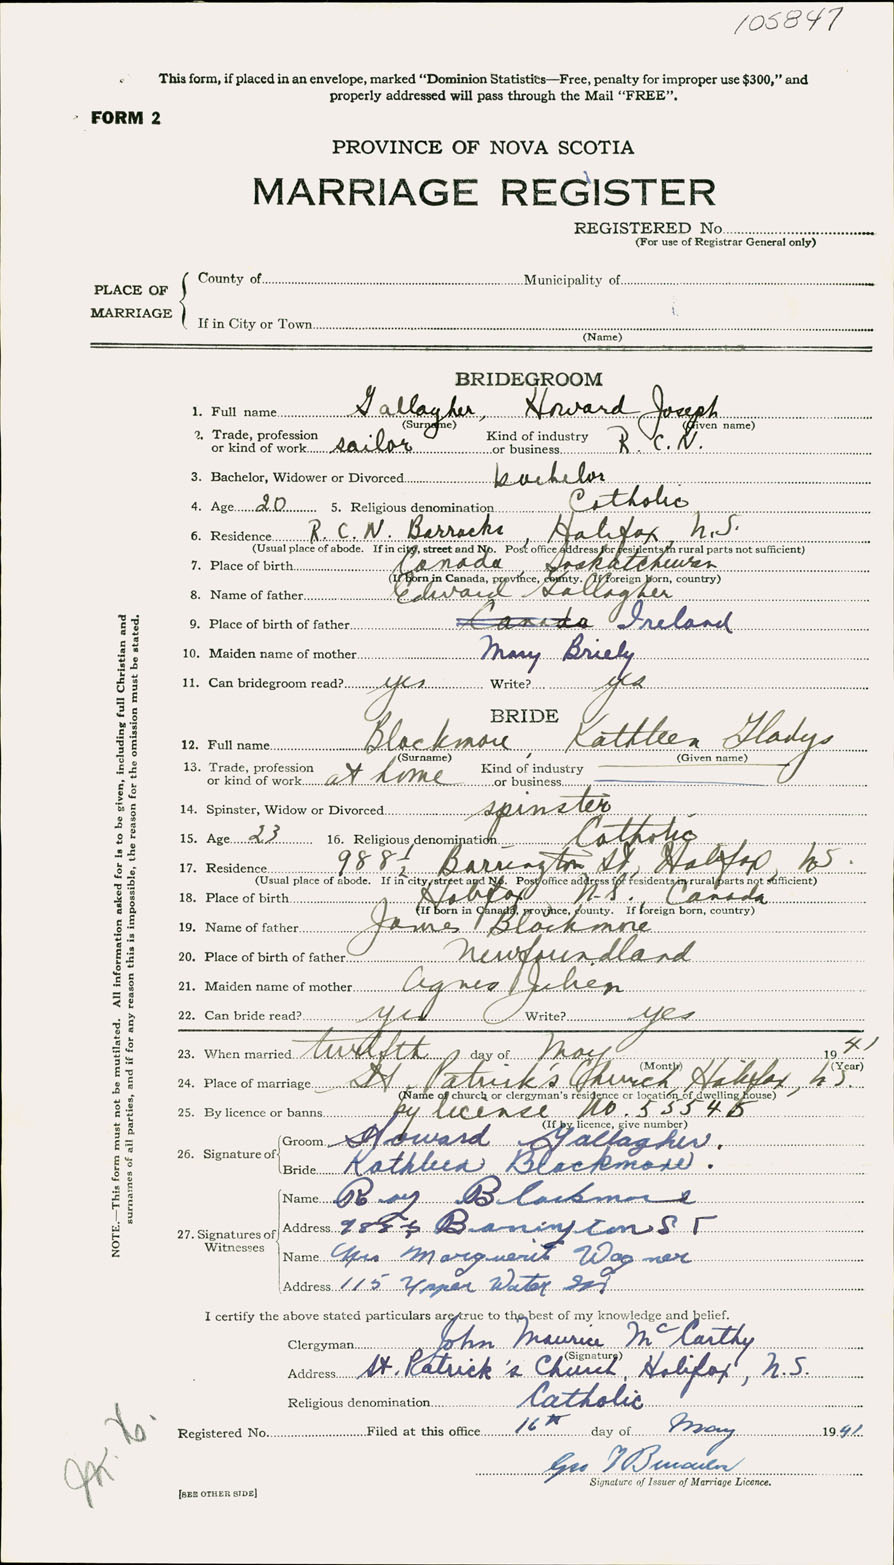 105847
This form, if placed in an envelope, marked “Dominion Statistics—Free, penalty for improper use $300,” and
properly addressed will pass through the Mail “FREE”.
FORM 2
PROVINCE OF NOVA SCOTIA
MARRIAGE REGISTER
REGISTERED No.
(For use of Registrar General only)
PLACE OF MARRIAGE
County of Municipality of
If in City or Town
(Name)
BRIDEGROOM
1. Full name Gallagher, Howard Joseph
(Surname) (Given name)
2. Trade, profession or kind of work sailor Kind of industry or business R.C.N.
3. Bachelor, Widower or Divorced bachelor
4. Age 20 5. Religious denomination Catholic
6. Residence R.C.N. Barracks, Halifax, N.S.
(Usual place of abode. If in city, street and No. Post office address for residents in rural parts not sufficient)
7. Place of birth Canada, Saskatchewan
(If born in Canada, province, county. If foreign born, country)
8. Name of father Edward Gallagher
9. Place of birth of father Canada Ireland
10. Maiden name of mother Mary Briely
11. Can bridegroom read? yes Write? yes
BRIDE
12. Full name Blackmore, Kathleen Gladys
(Surname) (Given name)
13. Trade, profession or kind of work at home Kind of industry or business
14. Spinster, Widow or Divorced spinster
15. Age 23 16. Religious denomination Catholic
17. Residence 988½ Barrington St, Halifax, NS.
(Usual place of abode. If in city, street and No. Post office address for residents in rural parts not sufficient)
18. Place of birth Halifax N.S. Canada
(If born in Canada, province, county. If foreign born, country)
19. Name of father James Blackmore
20. Place of birth of father Newfoundland
21. Maiden name of mother Agnes Julien
22. Can bride read? yes Write? yes
23. When married twelfth day of May 1941
(Month) (Year)
24. Place of marriage St. Patrick's Church, Halifax, N.S.
(Name of church or clergyman's residence or location of dwelling house)
25. By licence or banns by license No. 55545
(If by licence, give number)
26. Signature of
Groom Howard Gallagher.
Bride Kathleen Blackmore.
27. Signatures of Witnesses
Name Roy Blackmore
Address 988½ Barrington ST
Name Mrs Marguerit Wagner
Address 115 Upper Water
I certify the above stated particulars are true to the best of my knowledge and belief.
Clergyman John Maurice McCarthy
(Signature)
Address St. Patrick's Church, Halifax, N.S.
Religious denomination Catholic
Registered No. Filed at this office 16th day of May 1941
Geo
Signature of Issuer of Marriage Licence.
[SEE OTHER SIDE]
NOTE.—This form must not be mutilated. All information asked for is to be given, including full Christian and
surnames of all parties, and if for any reason this is impossible, the reason for the omission must be stated.